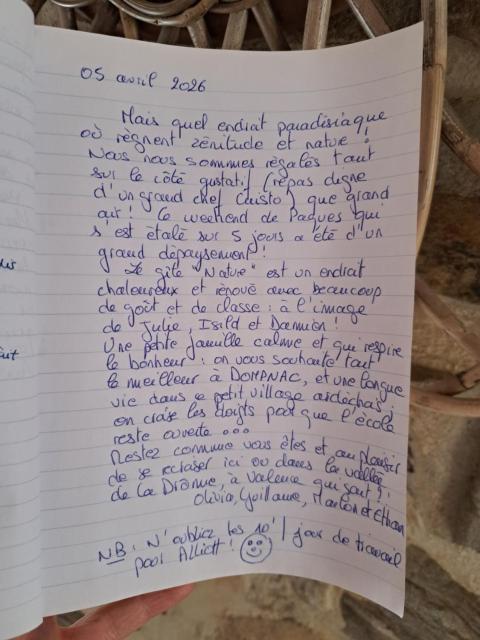 05 avril 2026
Mais quel endroit paradisiaque
où règnent zénitude et nature !
Nous nous sommes régalés tant
sur le côté gustatif (repas digne
d'un grand chef cuisto) que grand
air ! Ce weekend de Pâques qui
s'est étalé sur 5 jours a été d'un
grand dépaysement !
Le gîte "Nature" est un endroit
chaleureux et rénové avec beaucoup
de goût et de classe : à l'image
de Julie, et Damien !
Une petite famille calme et qui respire
le bonheur : on vous souhaite tout
le meilleur à DOMPNAC, et une longue
vie dans ce petit village ardéchois ;
on croise les doigts pour que l'école
reste ouverte ...
Restez comme vous êtes et au plaisir
de se recroiser ici ou dans la vallée
de la Drôme, à Valence qui sait ?!
Olivia, Guillaume, et Ethan
NB : N'oubliez les 10' / jour de travail
pour Alliott !